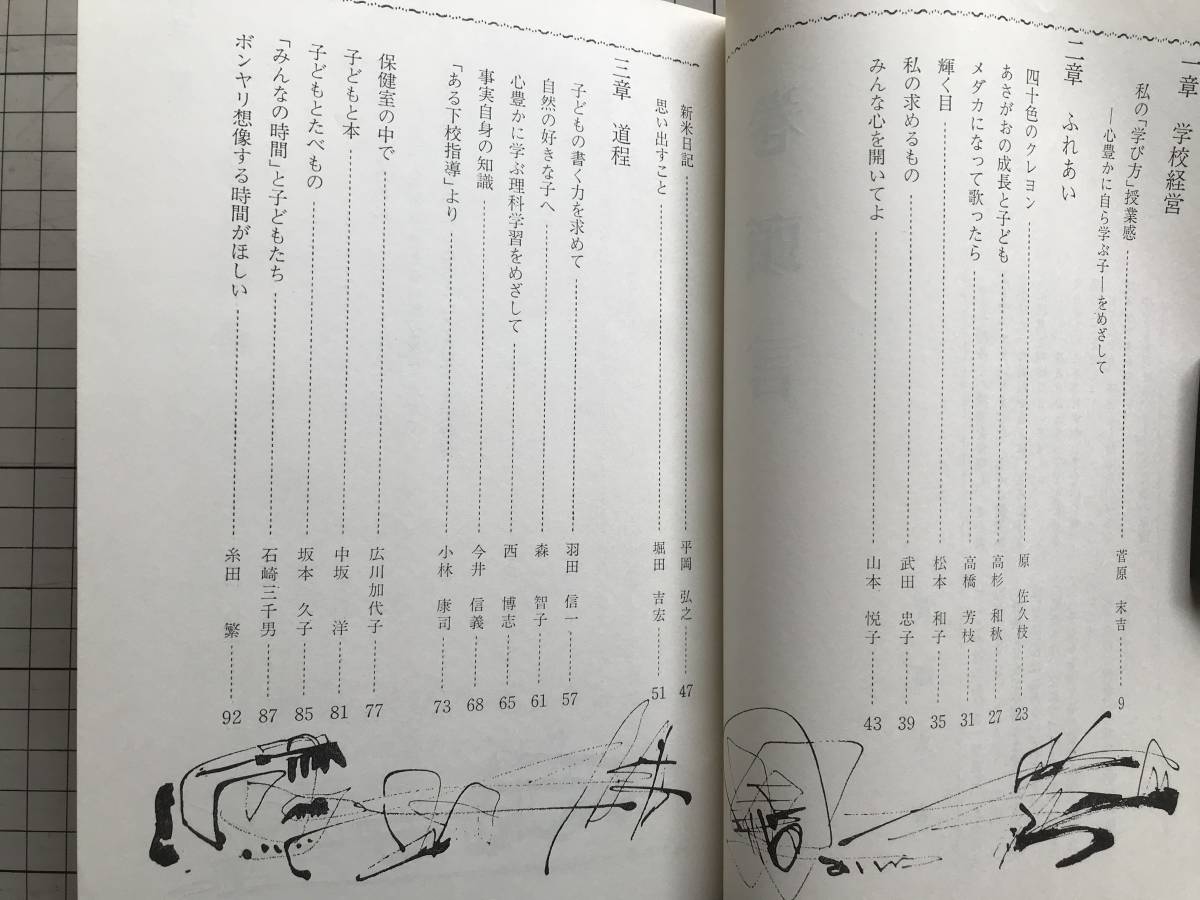 一章　学校経営
私の「学び方」授業感……菅原　末吉……9
―心豊かに自ら学ぶ子―をめざして
二章　ふれあい
四十色のクレヨン……原　佐久枝……23
あさがおの成長と子ども……高杉　和秋……27
メダカになって歌ったら……高橋　芳枝……31
輝く目……松本　和子……35
私の求めるもの……武田　忠子……39
みんな心を開いてよ……山本　悦子……43
新米日記……平岡　弘之……47
思い出すこと……堀田　吉宏……51
三章　道程
子どもの書く力を求めて……羽田　信一……57
自然の好きな子へ……森　智子……61
心豊かに学ぶ理科学習をめざして……西　博志……65
事実自身の知識……今井　信義……68
「ある下校指導」より……小林　康司……73
保健室の中で……広川加代子……77
子どもと本……中坂　洋……81
子どもとたべもの……坂本　久子……85
「みんなの時間」と子どもたち……石崎三千男……87
ボンヤリ想像する時間がほしい……糸田　繁……92